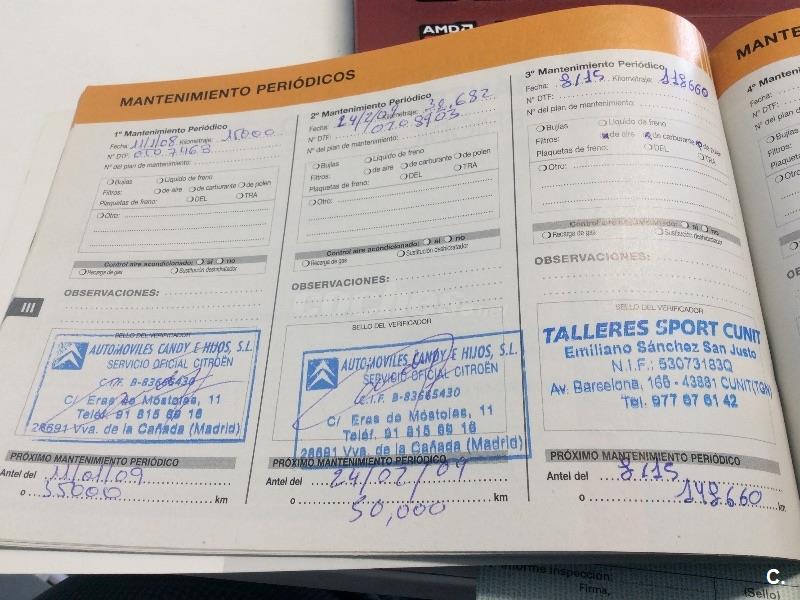 AMD
MANTENIMIENTO PERIÓDICOS
1º Mantenimiento Periódico
Fecha: 11/1/08 Kilometraje: 15000
Nº DTF: 0207463
Nº del plan de mantenimiento:
Bujías Líquido de freno
Filtros: de aire de carburante de polen
Plaquetas de freno: DEL TRA
Otro:
Control aire acondicionado: sí no
Recarga de gas Sustitución deshidratador
OBSERVACIONES:
SELLO DEL VERIFICADOR
AUTOMOVILES CANDY E HIJOS, S.L.
SERVICIO OFICIAL CITROËN
C.I.F. B-83665430
C/ Eras de Móstoles, 11
Teléf. 91 815 69 16
28691 Vva. de la Cañada (Madrid)
PRÓXIMO MANTENIMIENTO PERIÓDICO
Antel del 11/01/09
o 35000 km
2º Mantenimiento Periódico
Fecha: 24/2/08 Kilometraje: 38.682
Nº DTF: 0208903
Nº del plan de mantenimiento:
Bujías Líquido de freno
Filtros: de aire de carburante de polen
Plaquetas de freno: DEL TRA
Otro:
Control aire acondicionado: sí no
Recarga de gas Sustitución deshidratador
OBSERVACIONES:
SELLO DEL VERIFICADOR
AUTOMOVILES CANDY E HIJOS, S.L.
SERVICIO OFICIAL CITROËN
C.I.F. B-83665430
C/ Eras de Móstoles, 11
Teléf. 91 815 69 16
28691 Vva. de la Cañada (Madrid)
PRÓXIMO MANTENIMIENTO PERIÓDICO
Antel del 24/02/09
o km
50,000
3º Mantenimiento Periódico
Fecha: 8/15 Kilometraje: 118660
Nº DTF:
Nº del plan de mantenimiento:
Bujías Líquido de freno
Filtros: de aire de carburante de polen
Plaquetas de freno: DEL TRA
Otro:
Control aire acondicionado: sí no
Recarga de gas Sustitución deshidratador
OBSERVACIONES:
SELLO DEL VERIFICADOR
TALLERES SPORT CUNIT
Emiliano Sánchez San Justo
N.I.F.: 53073183Q
Av. Barcelona, 166 - 43881 CUNIT(TGN)
Tel. 977 67 61 42
PRÓXIMO MANTENIMIENTO PERIÓDICO
Antel del 8/15
o 148660 km
III
MANTE
4º Manteni
Fecha:
Nº DTF:
Nº del plan
Bujías
Filtros:
Plaquetas
Otro:
Informe Inspección:
Firma,
(Sello)
C.